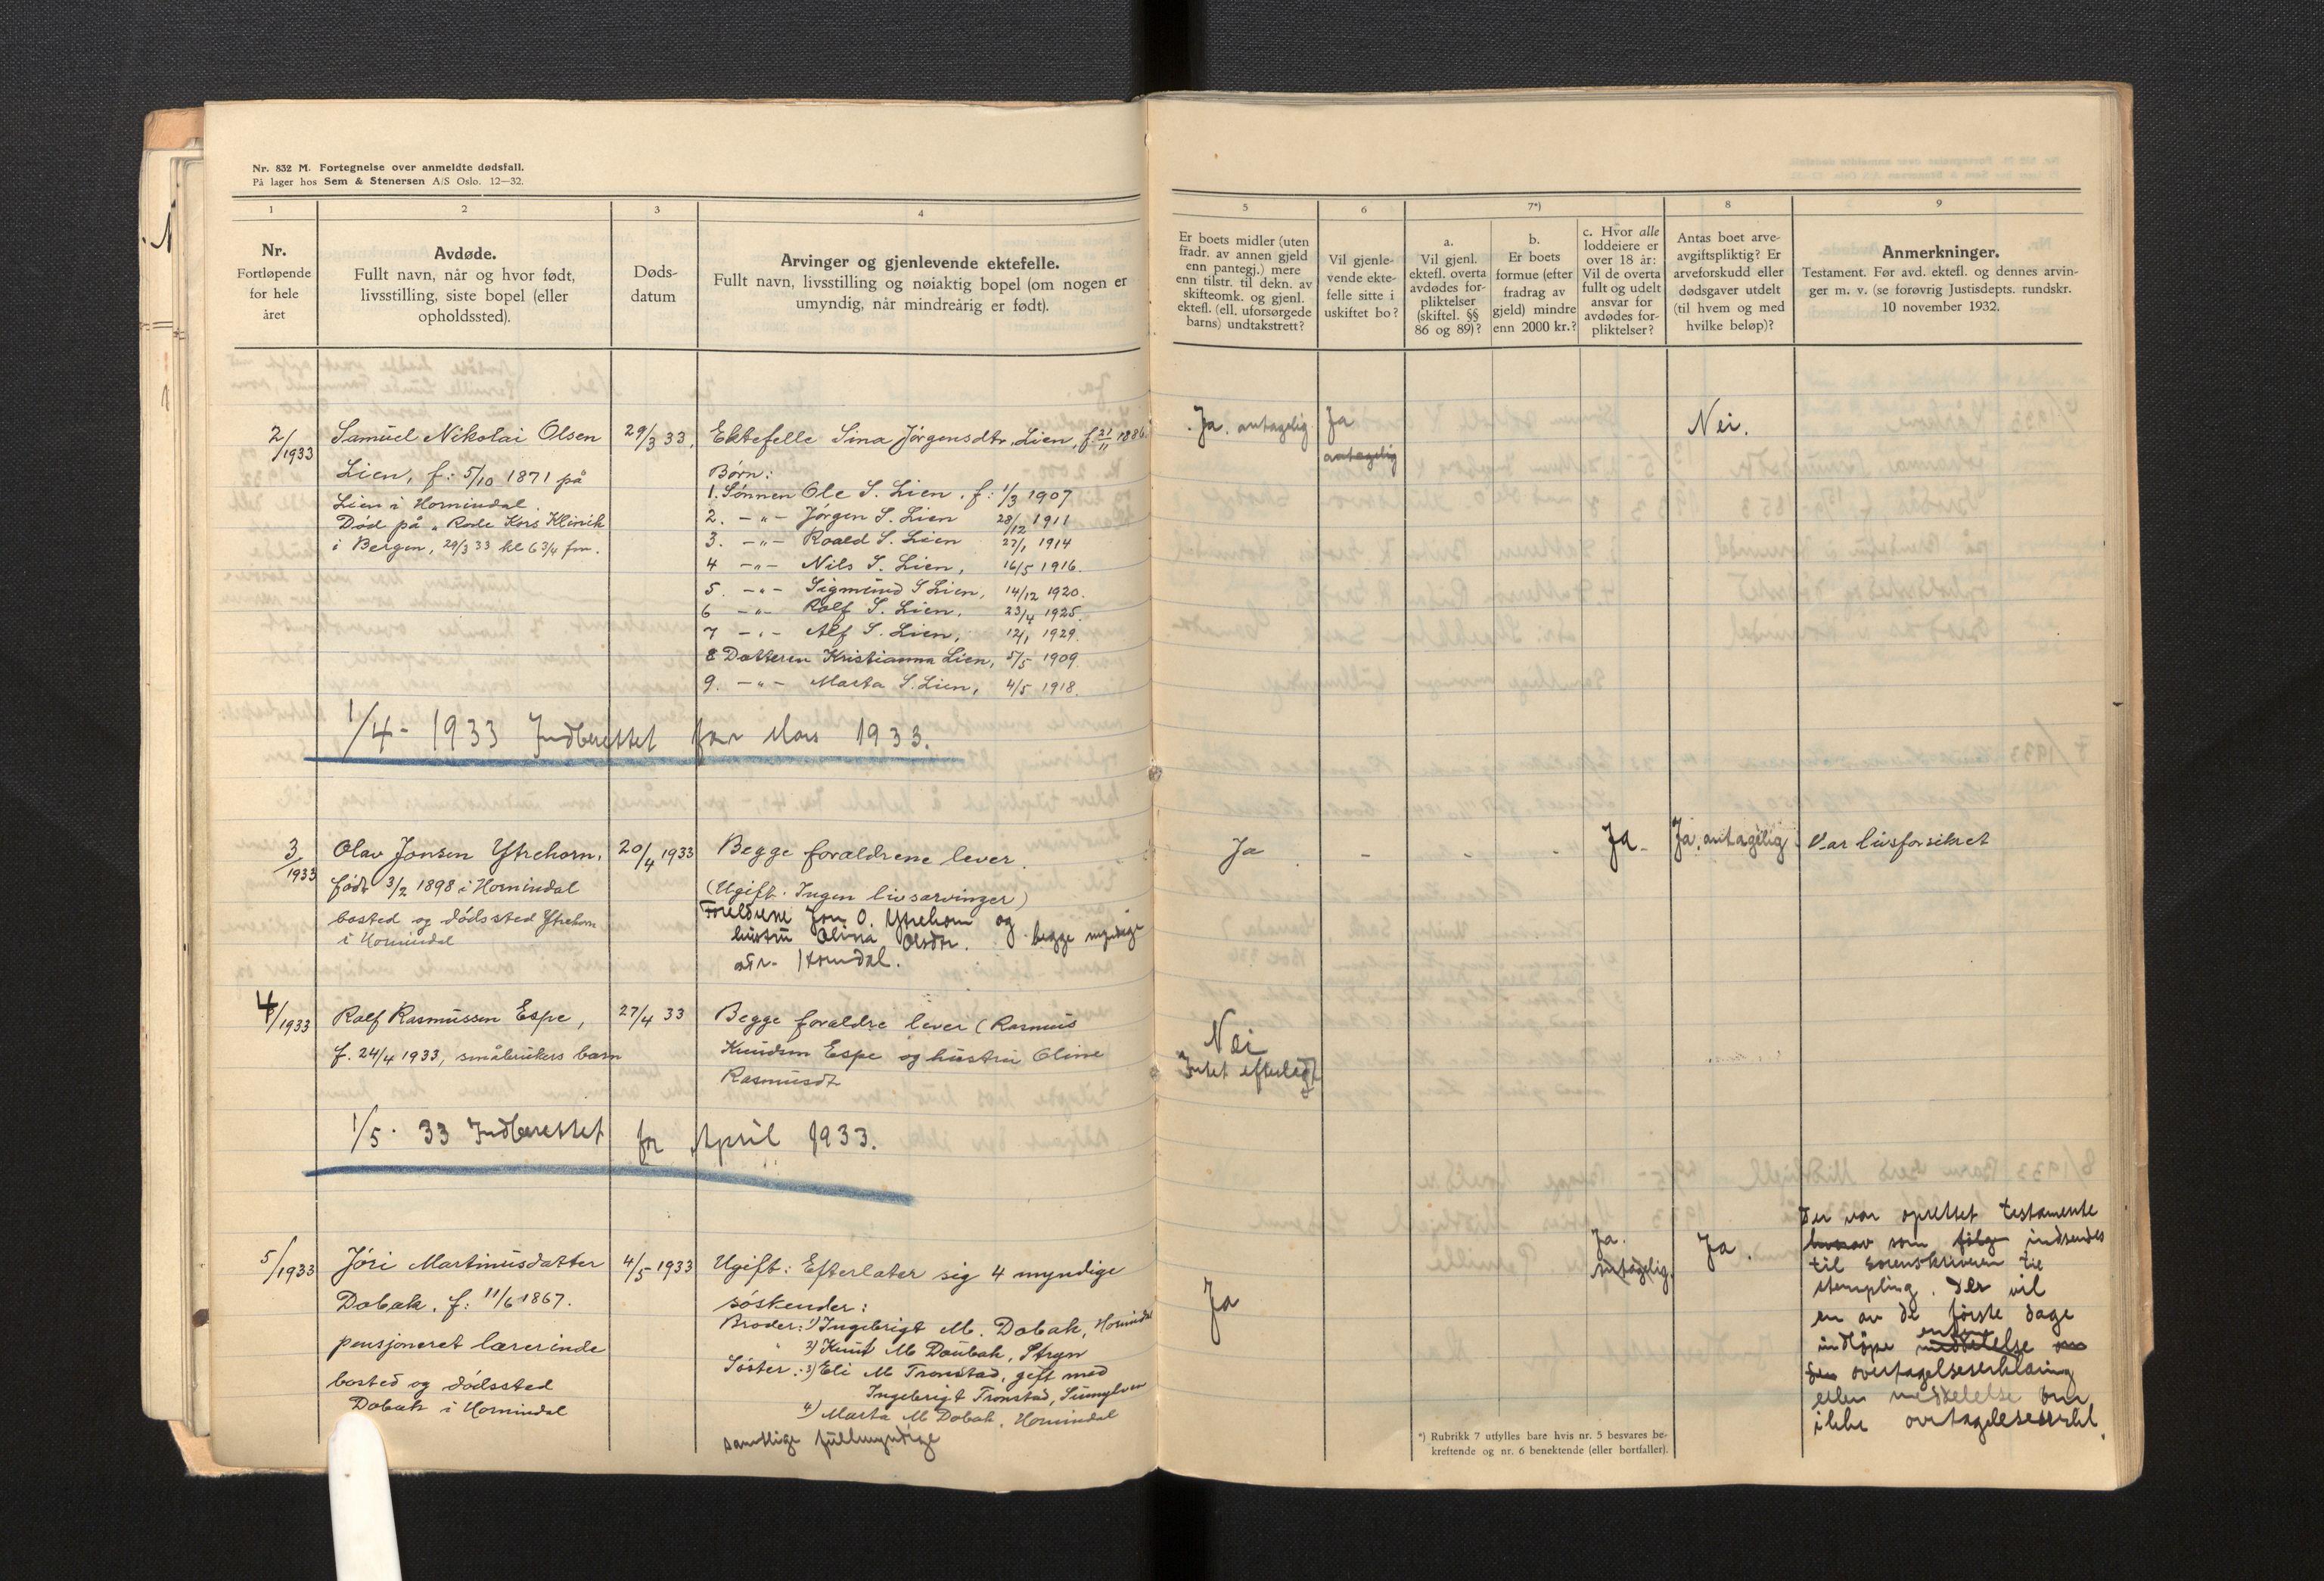 Nr. 832 M. Fortegnelse over anmeldte dødsfall.
På lager hos Sem & Stenersen A/S Oslo. 12—32.
1
2
3
4
Nr.
Fortløpende
for hele
året
Avdøde.
Fullt navn, når og hvor født,
livsstilling, siste bopel (eller
opholdssted).
Døds-
datum
Arvinger og gjenlevende ektefelle.
Fullt navn, livsstilling og nøiaktig bopel (om nogen er
umyndig, når mindreårig er født).
2/1933
Samuel Nikolai Olsen
Lien, f: 5/10 1871 på
Lien i Hornindal.
Død på "Røde Kors Klinik
i Bergen, 29/3 33 kl 6 3/4 fm.
29/3 33.
Ektefelle Sina Jørgensdtr. Lien, f 21/11 1886.
Børn:
1. Sønnen Ole S. Lien. f: 1/3 1907
2. -"- Jørgen S. Lien 28/12 1911
3. -"- Roald S. Lien 22/1 1914
4 -"- Nils S. Lien, 16/5 1916.
5. -"- Sigmund S Lien, 14/12 1920.
6 -"- Rolf S. Lien. 23/4 1925.
7 -"- Alf S. Lien, 12/1 1929.
8 Datteren Kristianna Lien, 5/5 1909.
9. -"- Marta S. Lien, 4/5 1918.
1/4 - 1933 Indberettet for Mars 1933.
3/1933
Olav Jonsen Ytrehorn,
født 3/2 1898 i Hornindal
bosted og dødssted Ytrehorn
i Hornindal
20/4 1933
Begge forældrene lever.
(Ugift. Ingen livsarvinger)
Foreldrene Jon O. Ytrehorn og
hustru Olina Olsdtr. begge myndige
adr. Horndal.
4/1933
Rolf Rasmussen Espe,
f. 24/4 1933, småbrukers barn
27/4 33
Begge forældre lever (Rasmus
Knudsen Espe og hustru Oline
Rasmusdt
1/5. 33 Indberettet for April 1933.
5/1933
Jøri Martinusdatter
Dobak. f: 11/6 1867.
pensjoneret lærerinde
bosted og dødssted
Dobak i Hornindal
4/5 1933
Ugift: Efterlater sig 4 myndige
søskender:
Broder: 1) Ingebrigt M. Dobak, Hornindal
" 2) Knut M Doubak, Stryn
Søster: 3) Eli M Tronstad, gift med
Ingebrigt Tronstad, Sunnylven
4) Marta M Dobak, Hornindal
samtlige fullmyndige
5
6
7*)
8
9
Er boets midler (uten
fradr. av annen gjeld
enn pantegj.) mere
enn tilstr. til dekn. av
skifteomk. og gjenl.
ektefl. (ell. uforsørgede
barns) undtakstrett?
Vil gjenle-
vende ekte-
felle sitte i
uskiftet bo?
a.
Vil gjenl.
ektefl. overta
avdødes for-
pliktelser
(skiftel. §§
86 og 89)?
b.
Er boets
formue (efter
fradrag av
gjeld) mindre
enn 2000 kr.?
c. Hvor alle
loddeiere er
over 18 år:
Vil de overta
fullt og udelt
ansvar for
avdødes for-
pliktelser?
Antas boet arve-
avgiftspliktig? Er
arveforskudd eller
dødsgaver utdelt
(til hvem og med
hvilke beløp)?
Anmerkninger.
Testament. Før avd. ektefl. og dennes arvin-
ger m. v. (se forøvrig Justisdepts. rundskr.
10 november 1932.
Ja. antagelig
Ja
antagelig
Nei.
Ja
-
-
-
Ja-
Ja. antagelig
Var livsforsikret
Nei
Intet efterladt
Ja
Ja.
antagelig.
Ja.
Der var oprettet testamente
som følge indsendes
til sorenskriveren til
stempling. Der vil
en av de første dage
indløpe enten meddelelse om
overtagelseserklæring
eller meddelelse om
ikke overtagelseserkl.
*) Rubrikk 7 utfylles bare hvis nr. 5 besvares be-
kreftende og nr. 6 benektende (eller bortfaller).